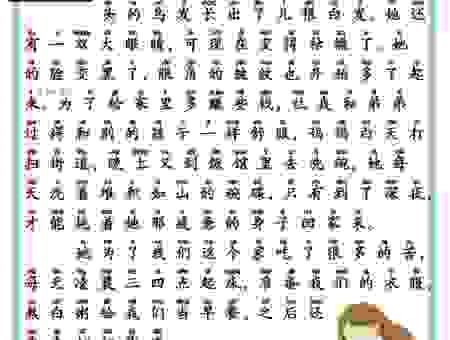 头的乌发长出了几根白发。她还
有一双大眼睛，可现在变得
了。她
的脸变黑了，眼角的皱纹也开始多了起
来。为了给家里多赚些钱，让我和弟弟
过得和别的孩子一样舒服，妈妈白天打
扫街道，晚上又到饭馆里去洗碗，她每
天洗着堆积如山的碗碟，只有到了深夜，
才能拖着她那疲惫的身子回家来。
她为了我们这个家吃了很多的苦，
每天凌晨三四点起床，准备我们的衣服，
熬白粥给我们当早餐，之后还